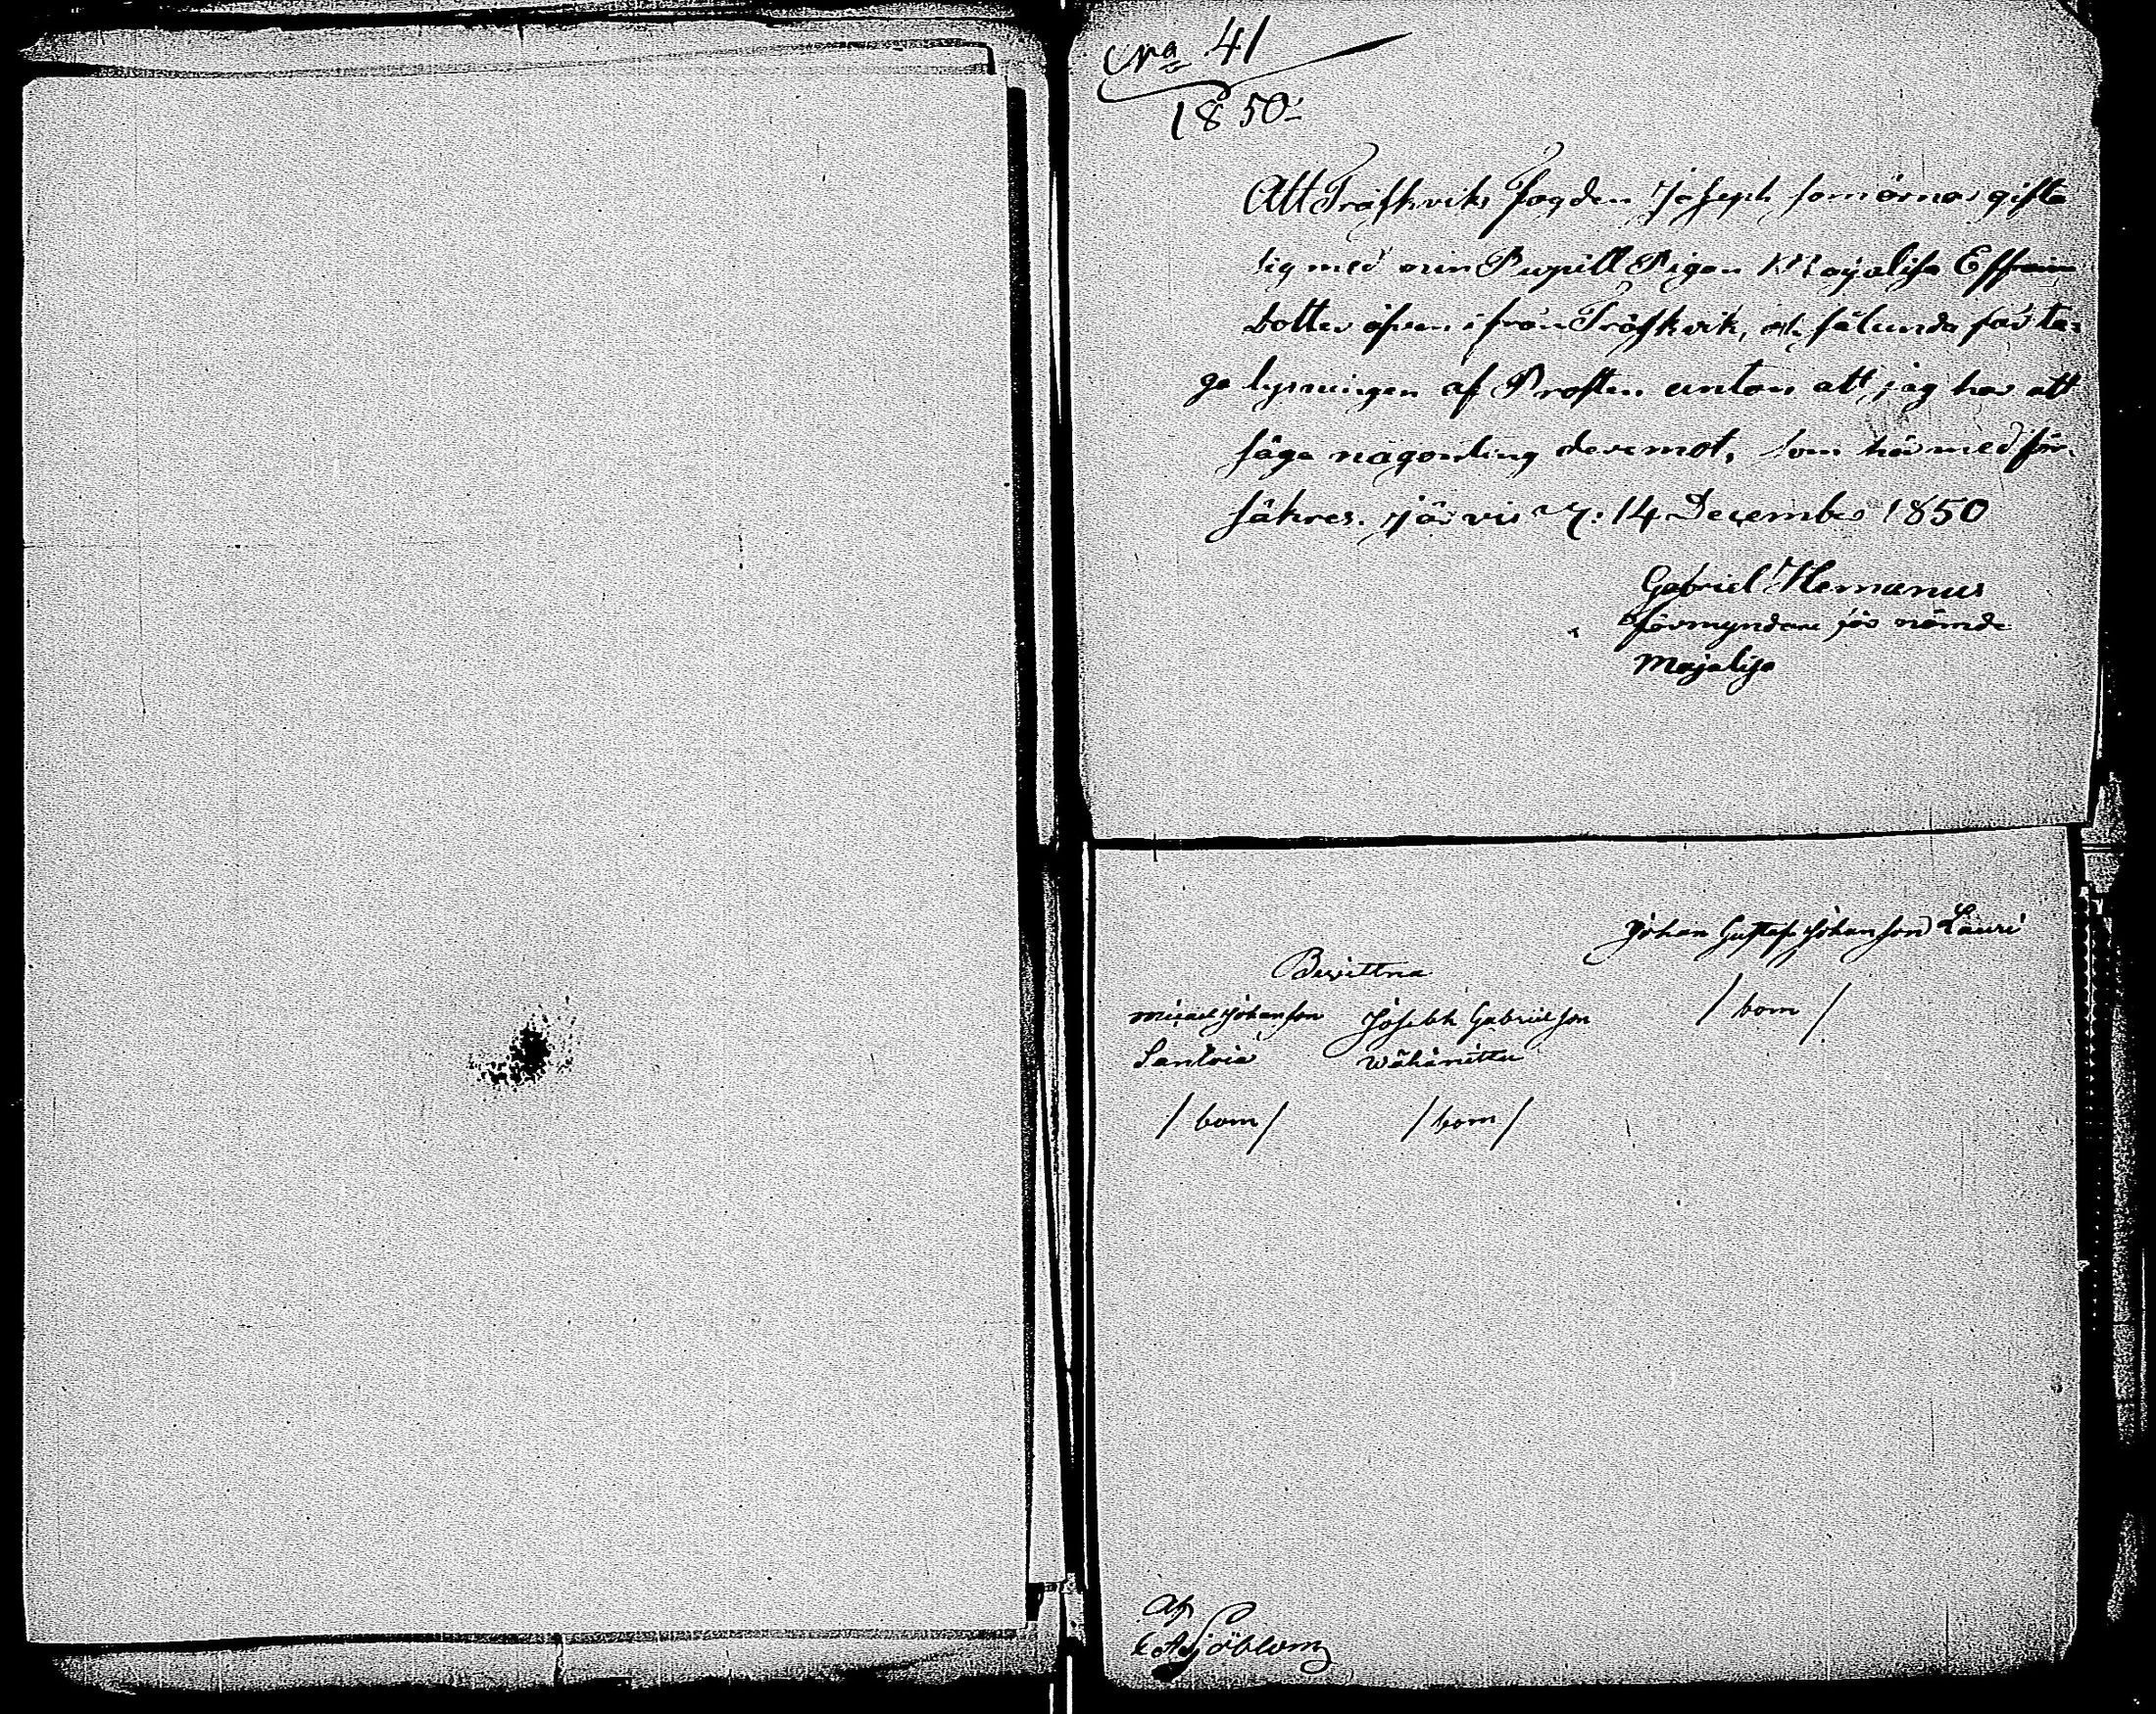 No 41
1850.
Att Träskviks Fogden Joseph som ärnar gifta
sig med min Pupill Pigan Majalisa Effraim
Dotter äfven ifrån Träskvik, och sålunda får ta-
ga lysningen af Prosten untan att jag har att
säga någonting deremot, som härmed för-
säkres. Järvis 14 December 1850
Gabriel Hemanus
förmyndare för nämde
Majalisa
Johan Gustaf Johanson Lauri
Bevittna
/ bom /
Micael Johanson Joseph Gabrielson
/ bom / / bom /
Af
Sjöblom